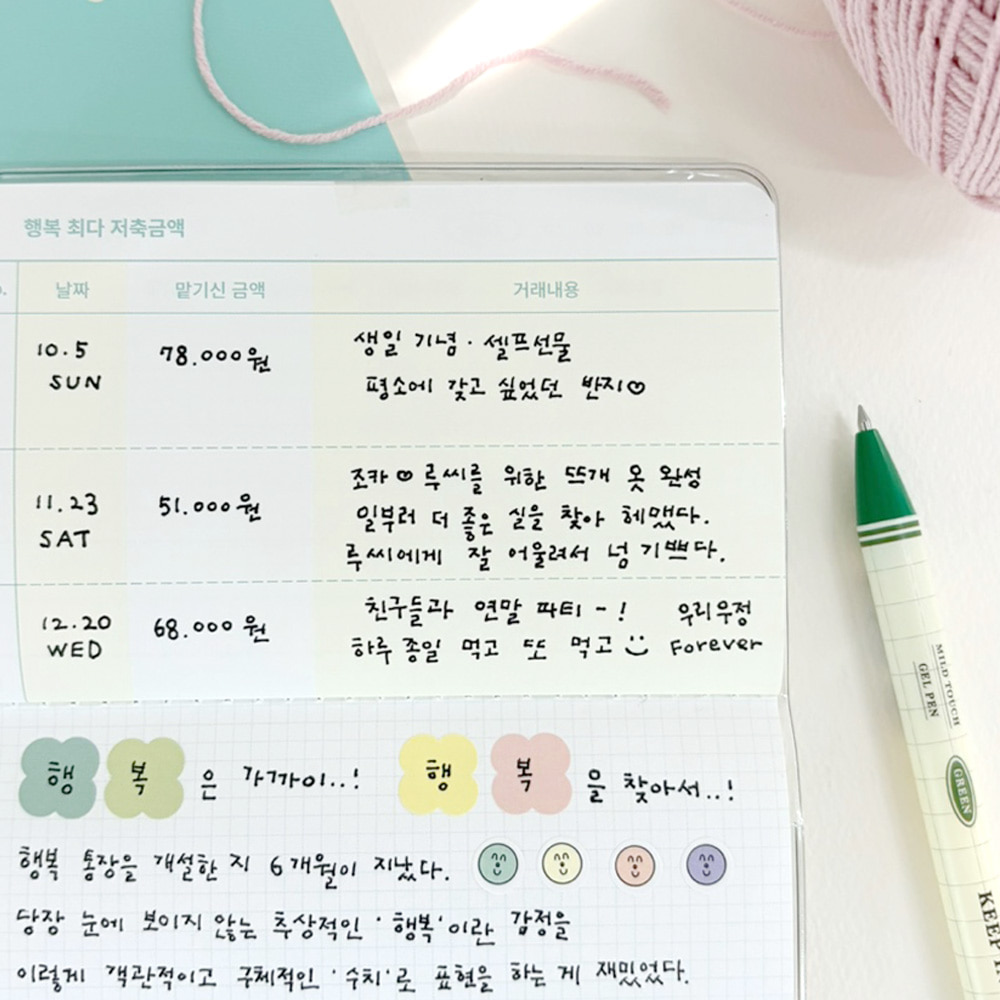 행복 최다 저축금액
날짜 맡기신 금액 거래내용
10.5 78.000원 생일 기념 · 셀프선물
SUN 평소에 갖고 싶었던 반지♡
11.23 51.000원 조카♡루씨를 위한 뜨개 옷 완성
SAT 일부러 더 좋은 실을 찾아 헤맸다.
루씨에게 잘 어울려서 넘 기쁘다.
12.20 68.000원 친구들과 연말 파티-! 우리우정
WED 하루종일 먹고 또 먹고 Forever
행복은 가까이..! 행복을 찾아서..!
행복 통장을 개설한 지 6개월이 지났다.
당장 눈에 보이지 않는 추상적인 '행복'이란 감정을
이렇게 객관적이고 구체적인 '수치'로 표현을 하는 게 재밌었다.
MILD TOUCH
GEL PEN
GREEN